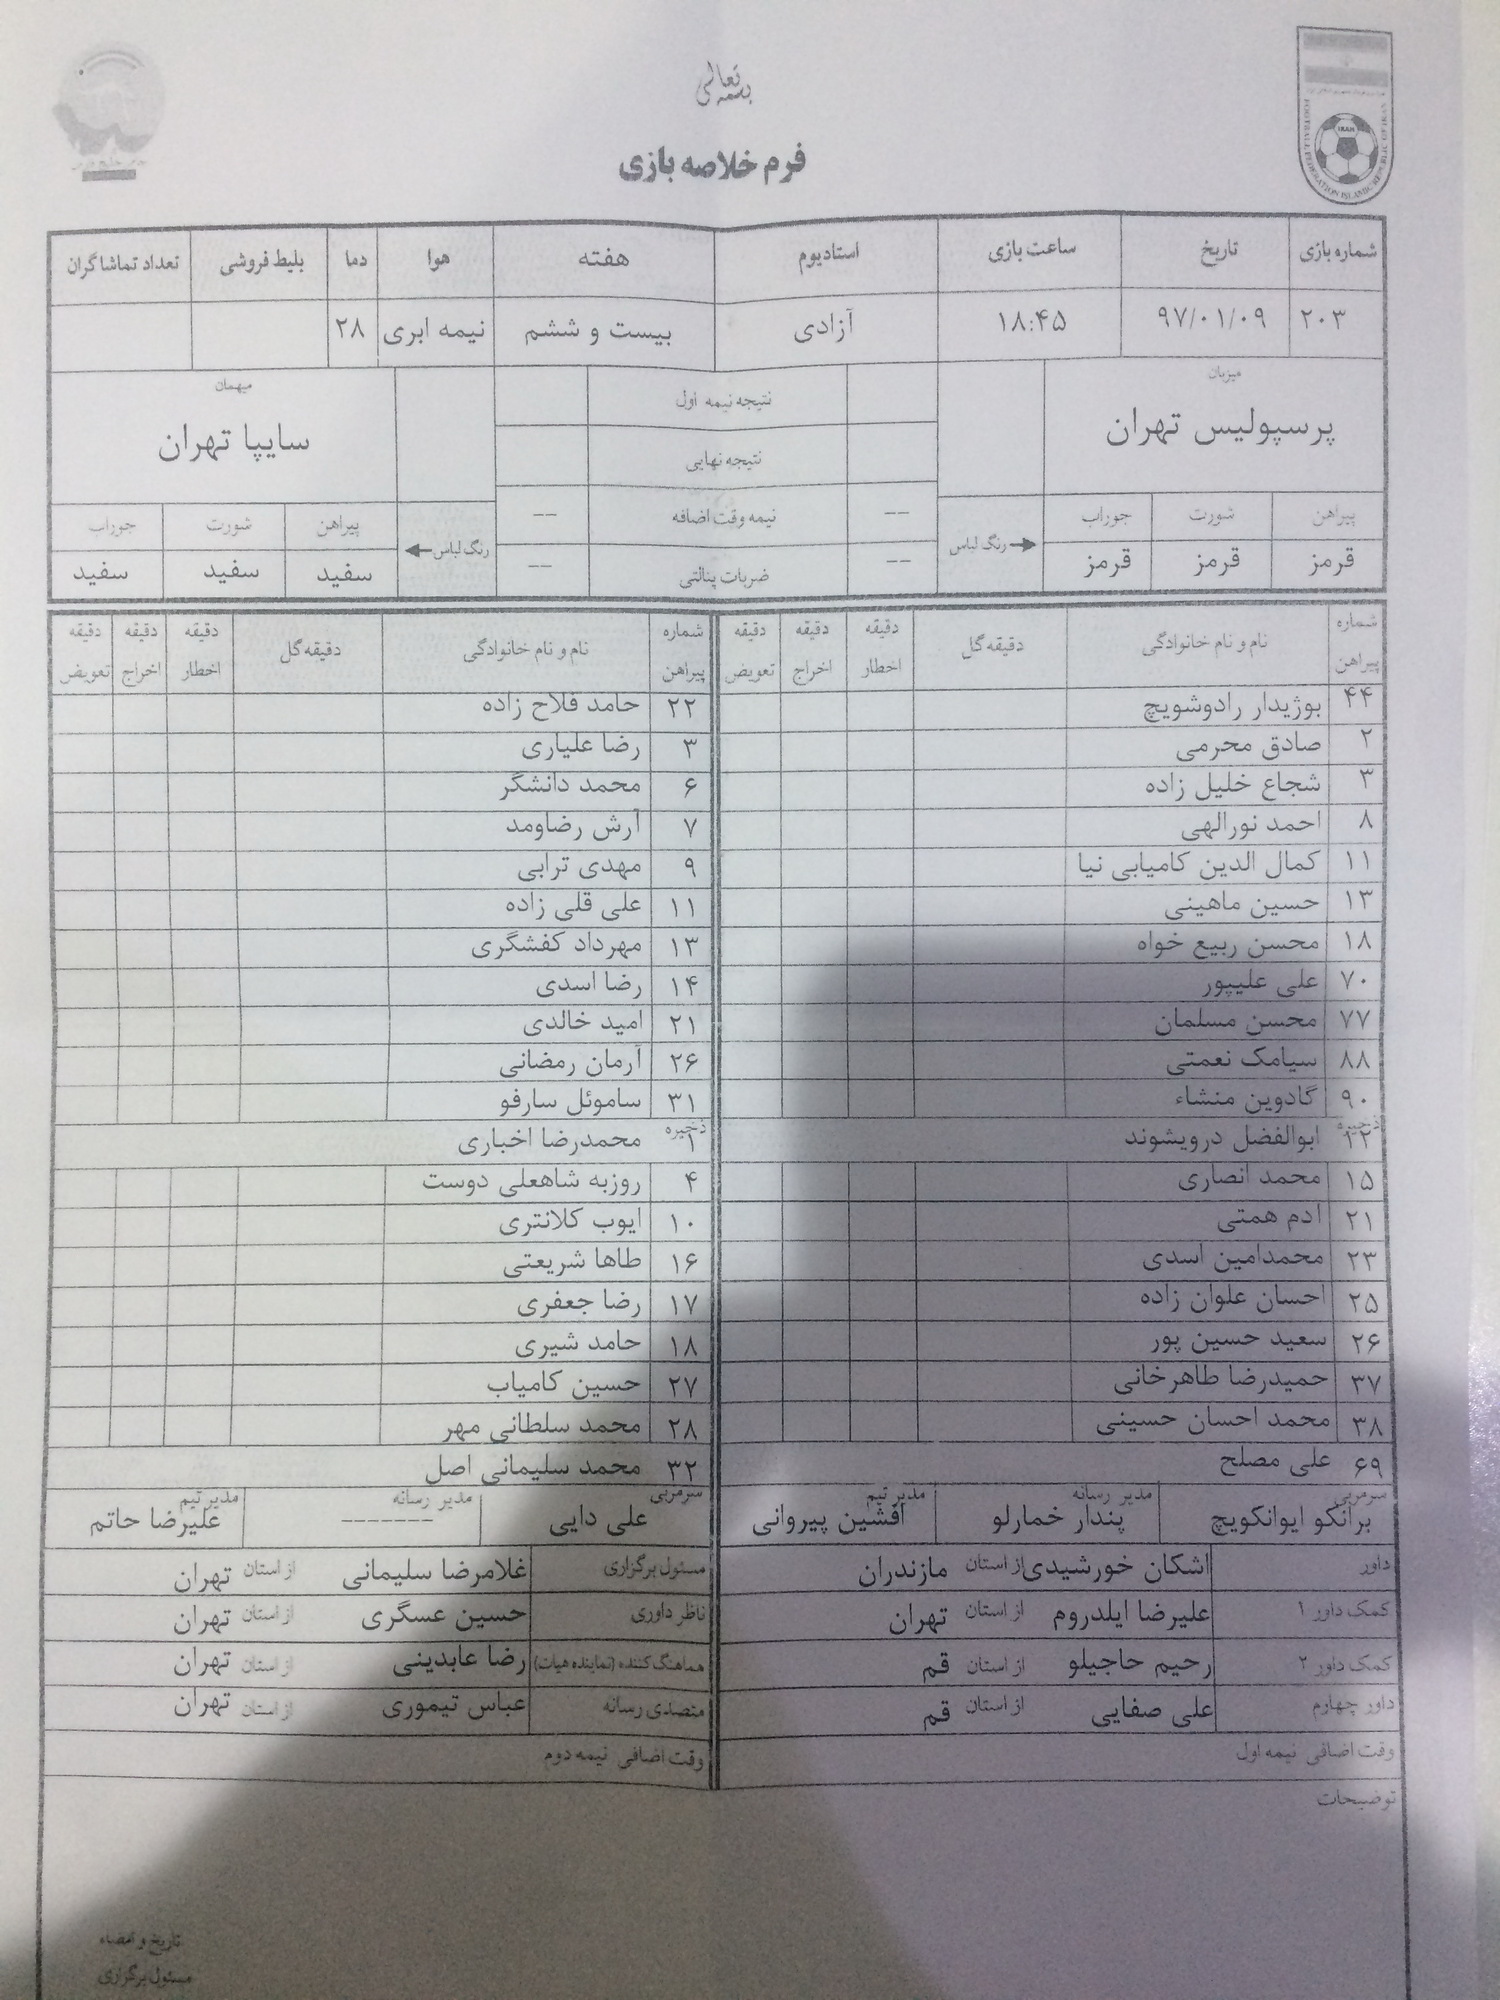 بسمه تعالی
IRAN
FOOTBALL FEDERATION ISLAMIC REPUBLIC OF IRAN
فرم خلاصه بازی
شماره بازی تاریخ ساعت بازی استادیوم هفته هوا دما بلیط فروشی تعداد تماشاگران
۲۰۳ ۹۷/۰۱/۰۹ ۱۸:۴۵ آزادی بیست و ششم نیمه ابری ۲۸
میزبان نتیجه نیمه اول میهمان
پرسپولیس تهران سایپا تهران
نتیجه نهایی
پیراهن شورت جوراب رنگ لباس -- نیمه وقت اضافه -- رنگ لباس پیراهن شورت جوراب
قرمز قرمز قرمز -- ضربات پنالتی -- سفید سفید سفید
شماره پیراهن نام و نام خانوادگی دقیقه گل دقیقه اخطار دقیقه اخراج دقیقه تعویض شماره پیراهن نام و نام خانوادگی دقیقه گل دقیقه اخطار دقیقه اخراج دقیقه تعویض
۴۴ بوژیدار رادوشویچ ۲۲ حامد فلاح زاده
۲ صادق محرمی ۳ رضا علیاری
۳ شجاع خلیل زاده ۶ محمد دانشگر
۸ احمد نورالهی ۷ آرش رضاوند
۱۱ کمال الدین کامیابی نیا ۹ مهدی ترابی
۱۳ حسین ماهینی ۱۱ علی قلی زاده
۱۸ محسن ربیع خواه ۱۳ مهرداد کفشگری
۷۰ علی علیپور ۱۴ رضا اسدی
۷۷ محسن مسلمان ۲۱ امید خالدی
۸۸ سیامک نعمتی ۲۶ آرمان رمضانی
۹۰ گادوین منشاء ۳۱ ساموئل سارفو
ذخیره ذخیره
۱۲ ابوالفضل درویشوند ۱ محمدرضا اخباری
۱۵ محمد انصاری ۴ روزبه شاهعلی دوست
۲۱ ادم همتی ۱۰ ایوب کلانتری
۲۳ محمدامین اسدی ۱۶ طاها شریعتی
۲۵ احسان علوان زاده ۱۷ رضا جعفری
۲۶ سعید حسین پور ۱۸ حامد شیری
۳۷ حمیدرضا طاهرخانی ۲۷ حسین کامیاب
۳۸ محمد احسان حسینی ۲۸ محمد سلطانی مهر
۶۹ علی مصلح ۳۲ محمد سلیمانی اصل
سرمربی مدیر رسانه مدیر تیم سرمربی مدیر رسانه مدیر تیم
برانکو ایوانکویچ پندار خمارلو افشین پیروانی علی دایی ------- علیرضا حاتم
داور اشکان خورشیدی از استان مازندران مسئول برگزاری غلامرضا سلیمانی از استان تهران
کمک داور ۱ علیرضا ایلدروم از استان تهران ناظر داوری حسین عسگری از استان تهران
کمک داور ۲ رحیم حاجیلو از استان قم هماهنگ کننده (نماینده هیات) رضا عابدینی از استان تهران
داور چهارم علی صفایی از استان قم متصدی رسانه عباس تیموری از استان تهران
وقت اضافی نیمه اول وقت اضافی نیمه دوم
توضیحات
تاریخ و امضاء
مسئول برگزاری